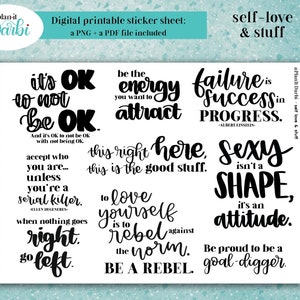 plan-it
Darbi
Digital printable sticker sheet:
a PNG + a PDF file included
self-love
& stuff
it's OK
to not
be OK
And it's OK to not be OK
with not being OK.
be the
energy
you want to
attract
failure is
success in
PROGRESS.
-ALBERT EINSTEIN-
accept who
you are...
unless
you're a
serial killer.
-ELLEN DEGENERES-
this right here,
this is the good stuff.
sexy
isn't a
SHAPE,
it's an
attitude.
when nothing goes
right,
go left.
to love
yourself
is to
rebel against
the norm.
BE A REBEL.
Be proud to be a
goal-digger.
self love & stuff